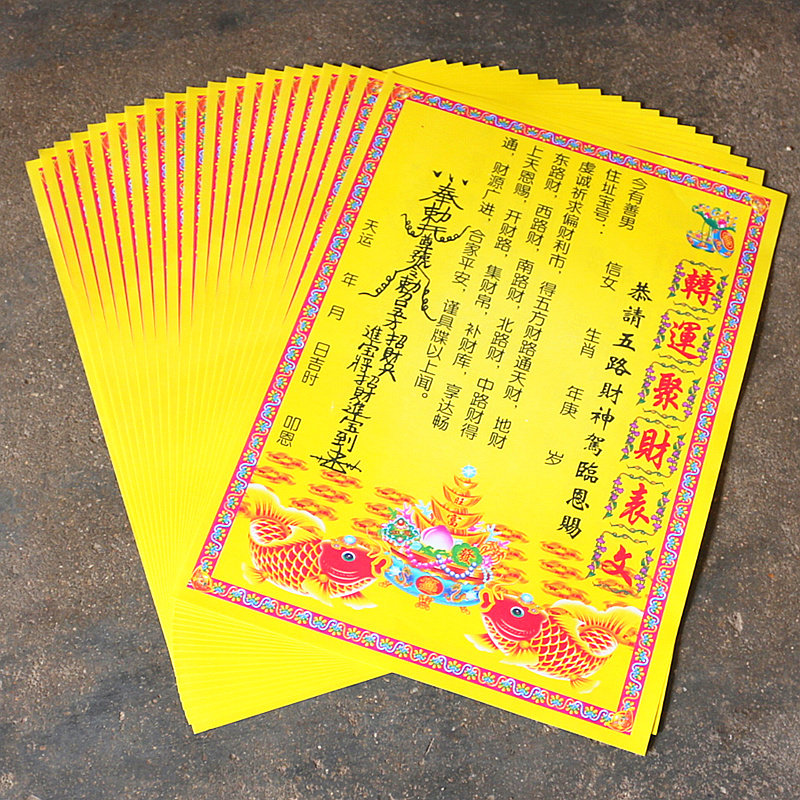 轉運聚財表文
恭請五路財神駕臨恩賜
今有善男 信女 生肖 年庚 岁
住址宝号:
虔诚祈求偏财利市，得五方财路通天财，地财
东路财，西路财，南路财，北路财，中路财得
上天恩赐，开财路，集财帛，补财库，享达畅
通，财源广进，合家平安，谨具牒以上闻。
奉勅
令勅召五方招財
進宝將招財進宝到
天运 年 月 日吉时 叩恩
旺
富